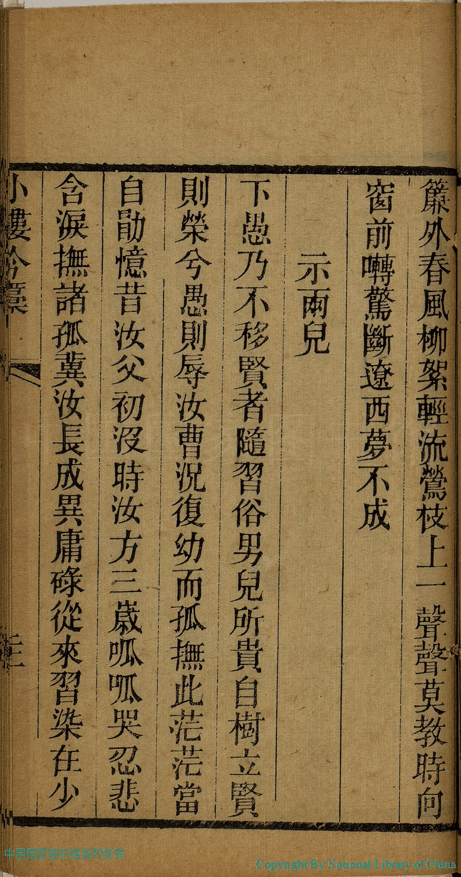 簾外春風柳絮輕流鶯枝上一聲聲莫教時向
窗前囀驚斷遼西夢不成
示兩兒
下愚乃不移賢者隨習俗男兒所貴自樹立賢
則榮兮愚則辱汝曹況復幼而孤撫此茫茫當
自勖憶昔汝父初沒時汝方三歲呱呱哭忍悲
含淚撫諸孤冀汝長成異庸碌從來習染在少
小樓吟稾
Copyright By National Library of China